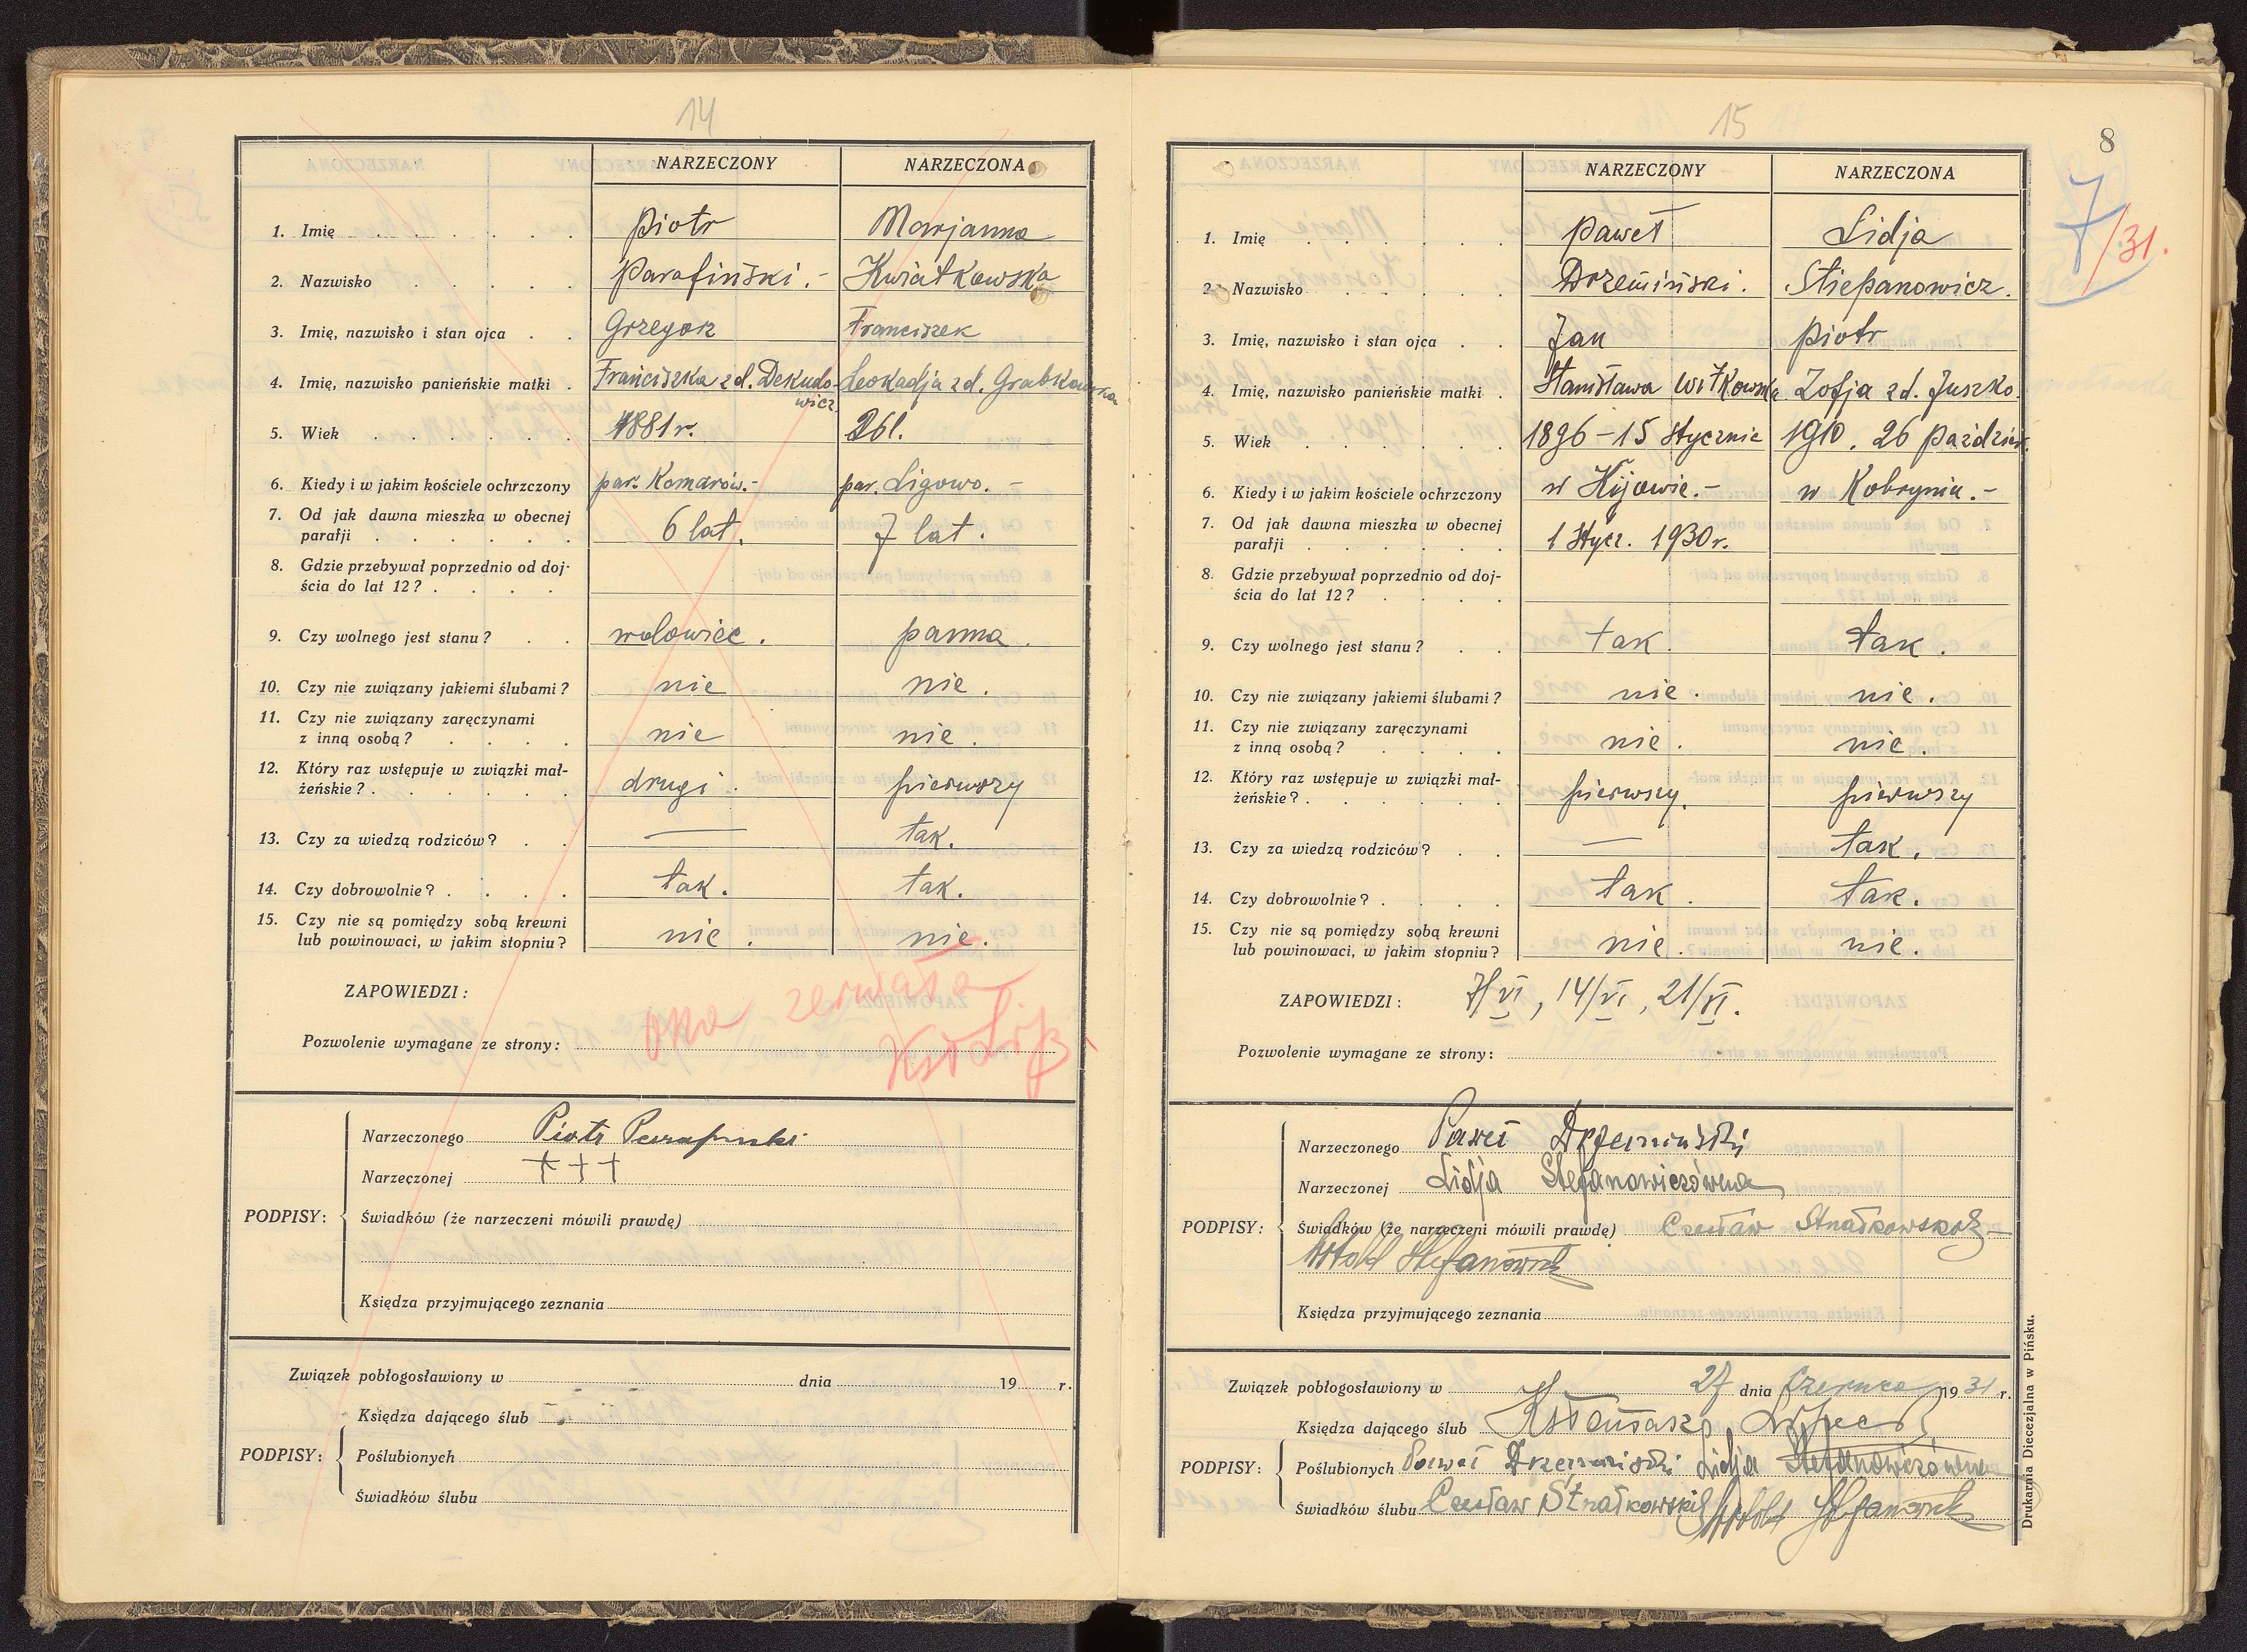 14
NARZECZONY NARZECZONA
1. Imię Piotr Marjanna
2. Nazwisko Parafiński. - Kwiatkowska
3. Imię, nazwisko i stan ojca Grzegorz Franciszek
4. Imię, nazwisko panieńskie matki Franciszka z d. Dekudo- Leokadja z d. Grabkowska
wicz
5. Wiek 1881 r. 26 l.
6. Kiedy i w jakim kościele ochrzczony par. Komarów. - par. Ligowo. -
7. Od jak dawna mieszka w obecnej
parafji 6 lat. 7 lat.
8. Gdzie przebywał poprzednio od doj-
ścia do lat 12?
9. Czy wolnego jest stanu? wdowiec. panna.
10. Czy nie związany jakiemi ślubami? nie nie.
11. Czy nie związany zaręczynami
z inną osobą? nie nie.
12. Który raz wstępuje w związki mał-
żeńskie? drugi. pierwszy
13. Czy za wiedzą rodziców? — tak.
14. Czy dobrowolnie? tak. tak.
15. Czy nie są pomiędzy sobą krewni
lub powinowaci, w jakim stopniu? nie. nie.
ZAPOWIEDZI:
ona zerwała
Pozwolenie wymagane ze strony:
PODPISY:
Narzeczonego Piotr Parafinski
Narzeczonej +++
Świadków (że narzeczeni mówili prawdę)
Księdza przyjmującego zeznania
Związek pobłogosławiony w dnia 19 r.
PODPISY:
Księdza dającego ślub
Poślubionych
Świadków ślubu
15
8
7/31.
NARZECZONY NARZECZONA
1. Imię Paweł Lidja
2. Nazwisko Drzemiński. Stiepanowicz.
3. Imię, nazwisko i stan ojca Jan Piotr
4. Imię, nazwisko panieńskie matki Stanisława Witkowska Zofja z d. Juszko.
5. Wiek 1896 - 15 stycznia 1910. 26 Paździer.
6. Kiedy i w jakim kościele ochrzczony w Kijowie. - w Kobryniu. -
7. Od jak dawna mieszka w obecnej
parafji 1 stycz. 1930 r.
8. Gdzie przebywał poprzednio od doj-
ścia do lat 12?
9. Czy wolnego jest stanu? tak. tak.
10. Czy nie związany jakiemi ślubami? nie. nie.
11. Czy nie związany zaręczynami
z inną osobą? nie. nie.
12. Który raz wstępuje w związki mał-
żeńskie? pierwszy. pierwszy
13. Czy za wiedzą rodziców? — tak.
14. Czy dobrowolnie? tak. tak.
15. Czy nie są pomiędzy sobą krewni
lub powinowaci, w jakim stopniu? nie. nie.
ZAPOWIEDZI: 7/VI, 14/VI, 21/VI.
Pozwolenie wymagane ze strony:
PODPISY:
Narzeczonego Paweł Drzemiński
Narzeczonej Lidja Stefanowiczówna
Świadków (że narzeczeni mówili prawdę) Czesław
Witold Stefanowicz
Księdza przyjmującego zeznania
Związek pobłogosławiony w 27 dnia czerwca 1931 r.
PODPISY:
Księdza dającego ślub
Poślubionych Paweł Drzemiński Lidja Stefanowiczówna
Świadków ślubu Czesław Witold Stefanowicz
Drukarnia Diecezjalna w Pińsku.